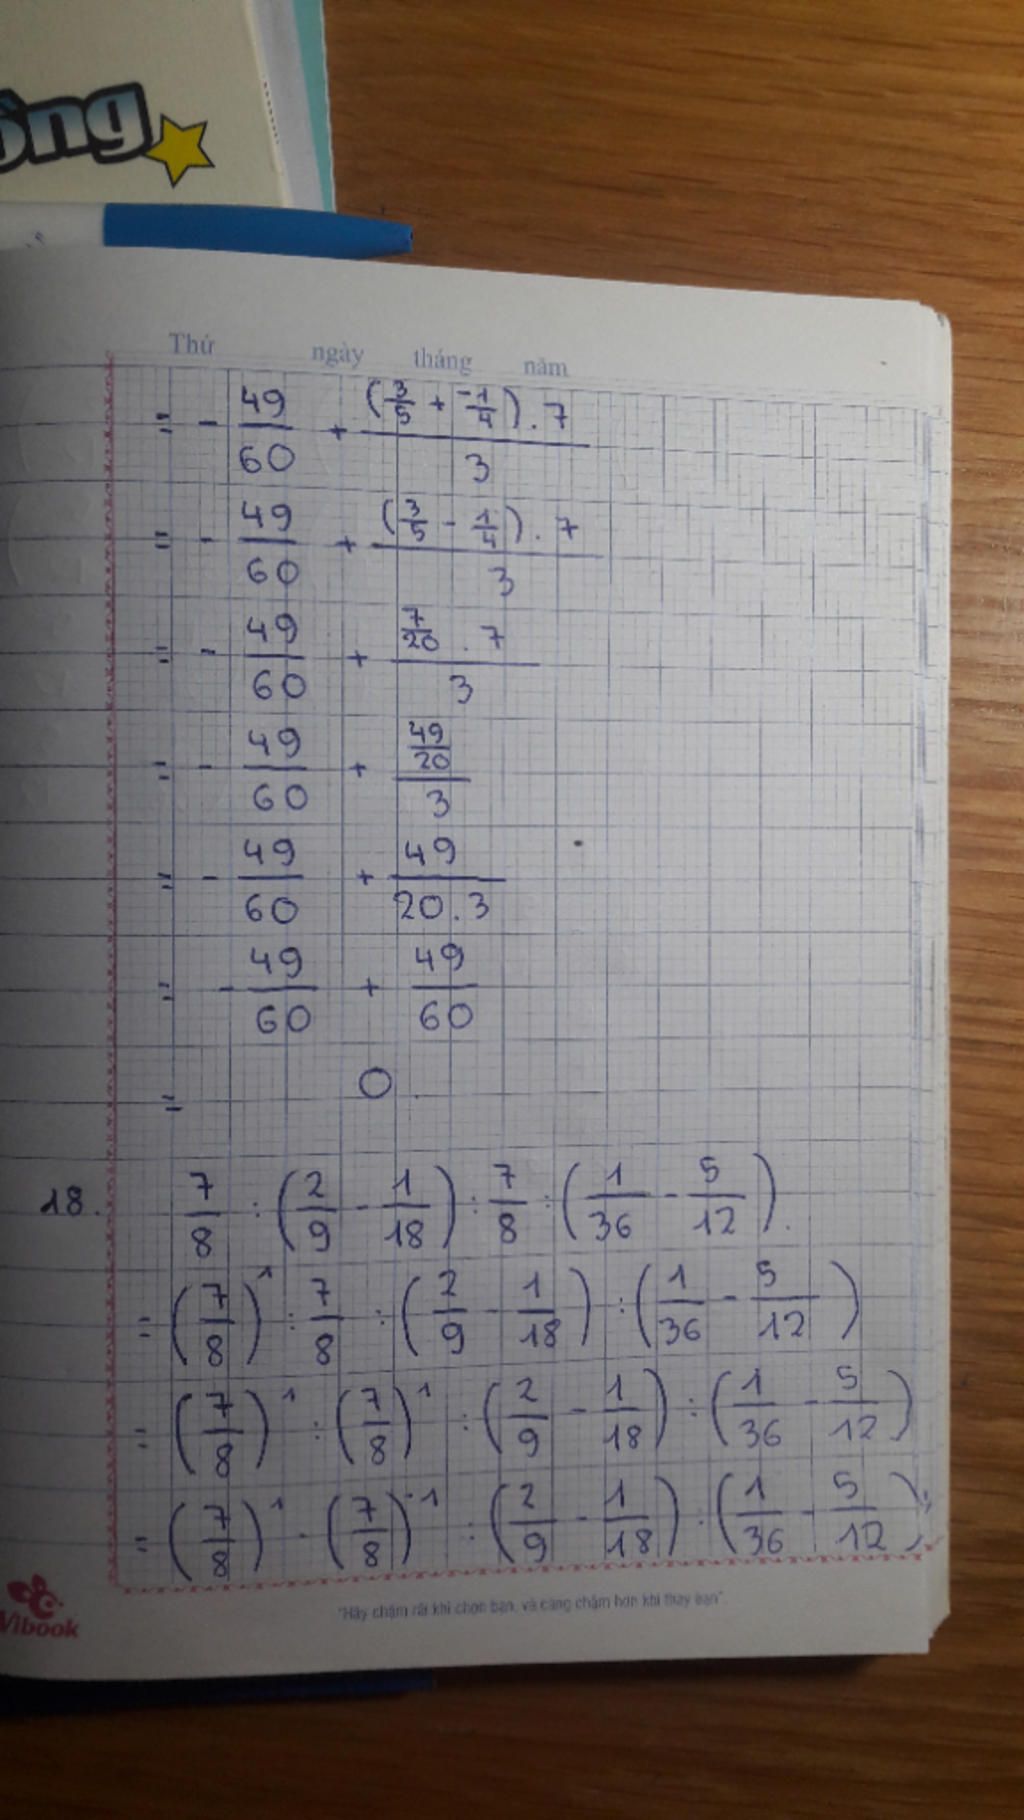 ồng
Thứ ngày tháng năm
= - 49/60 + ((3/5 + -1/4) . 7)/3
= - 49/60 + ((3/5 - 1/4) . 7)/3
= - 49/60 + (7/20 . 7)/3
= - 49/60 + (49/20)/3
= - 49/60 + 49/(20.3)
= - 49/60 + 49/60
= 0
18. 7/8 : (2/9 - 1/18) : 7/8 : (1/36 - 5/12).
= (7/8)^1 : 7/8 : (2/9 - 1/18) : (1/36 - 5/12)
= (7/8)^1 : (7/8)^1 : (2/9 - 1/18) : (1/36 - 5/12)
= (7/8)^1 . (7/8)^-1 : (2/9 - 1/18) : (1/36 - 5/12)
Vibook
"Hãy chậm rãi khi chọn bạn, và càng chậm hơn khi thay bạn".